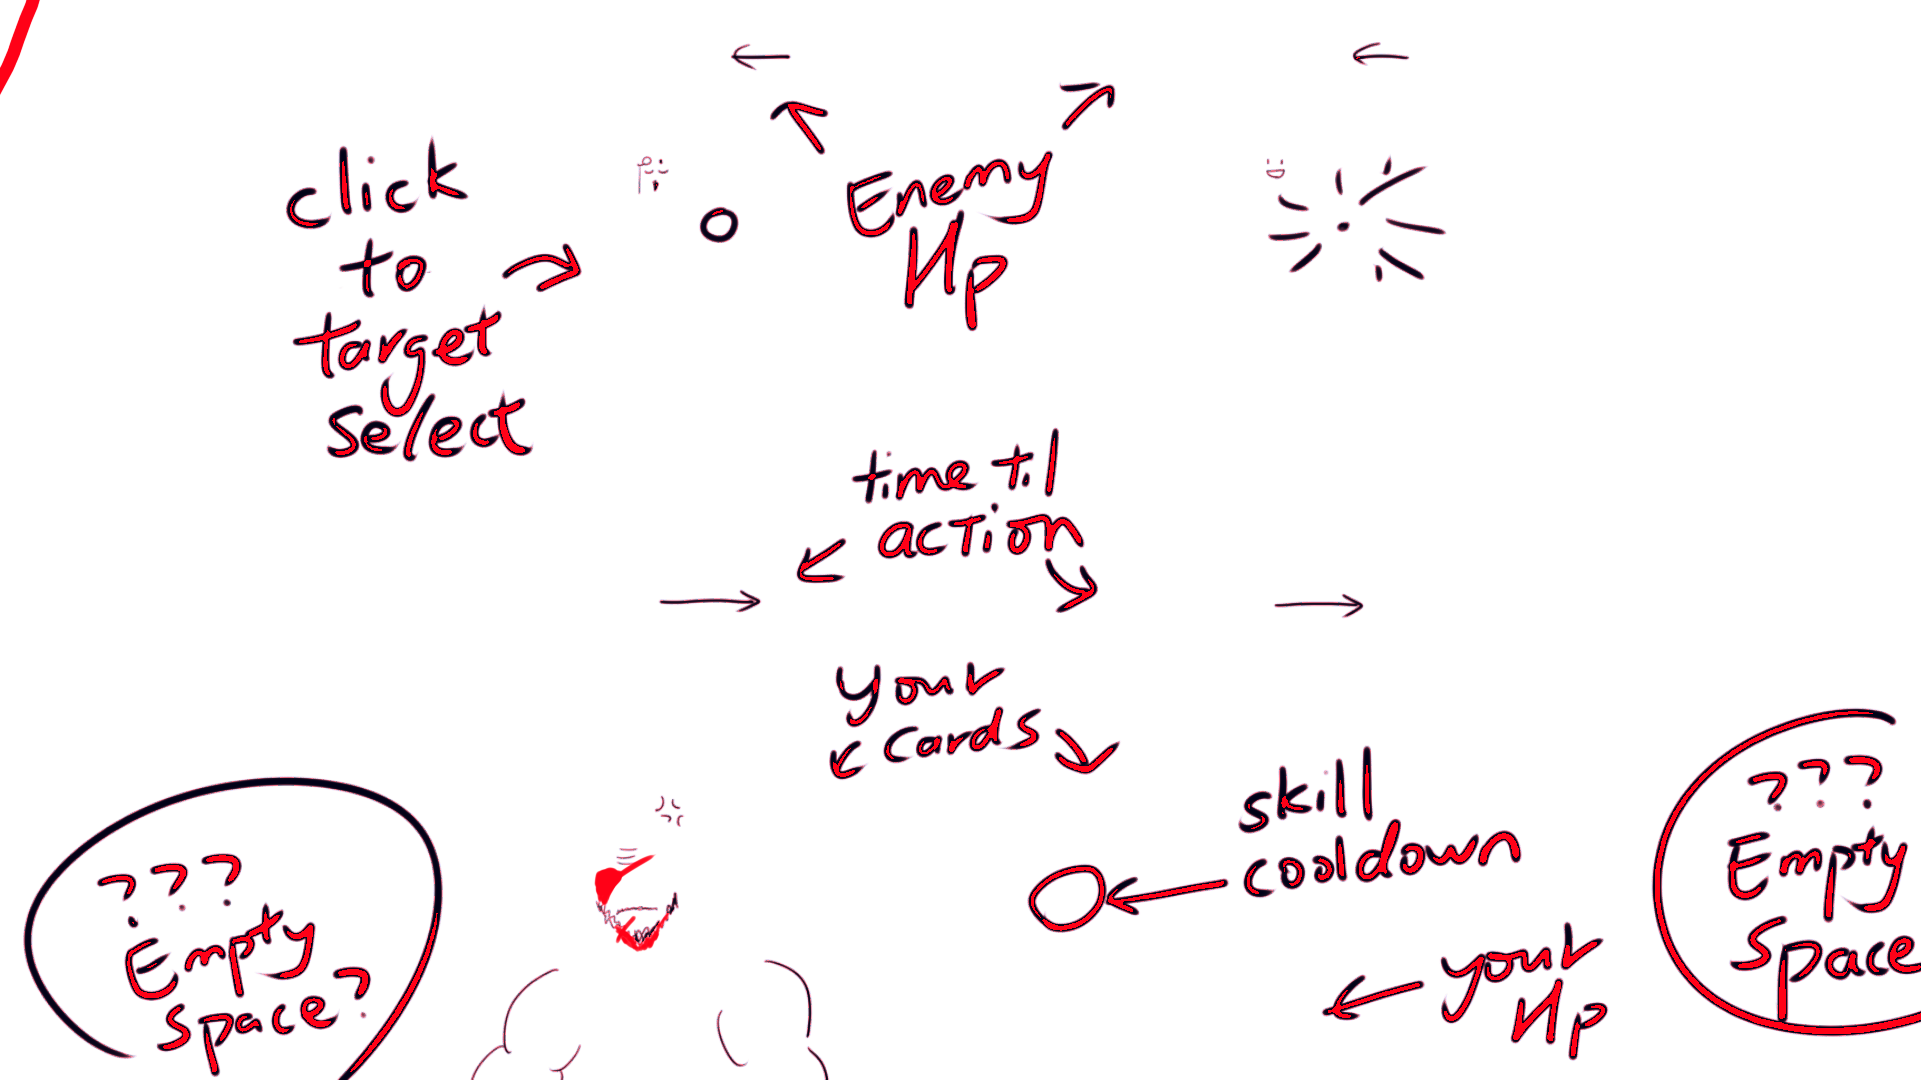 click
to
target
select
Enemy
Hp
time til
action
your
cards
skill
cooldown
your
Hp
???
Empty
Space?
???
Empty
Space